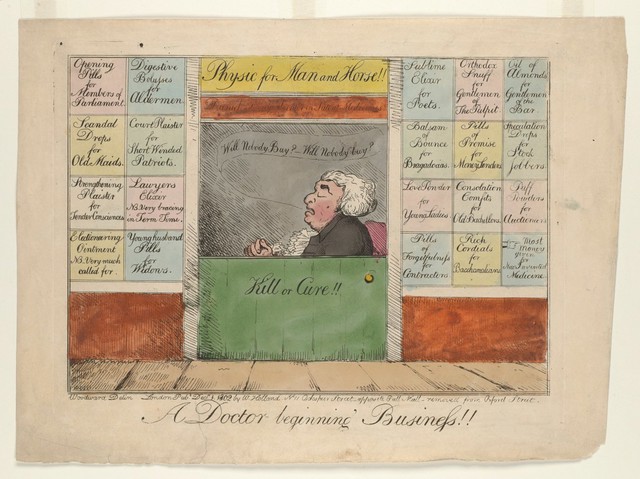 Opening
Pills
for
Members of
Parliament.
Digestive
Bolusses
for
Aldermen.
Scandal
Drops
for
Old Maids.
Court Plaister
for
Short Winded
Patriots.
Strengthening
Plaister
for
Tender Consciences
Lawyers
Elixer
NB. Very bracing
in Term Time.
Electioneering
Ointment
NB. Very much
called for.
Young husband
Pills
for
Widows.
Physic for Man and Horse!!
Will Nobody Buy?— Will Nobody buy?
Kill or Cure!!
Sublime
Elixir
for
Poets.
Orthodox
Snuff
for
Gentlemen
of
The Pulpit.
Oil of
Almonds
for
Gentlemen
of the
Bar
Balsam
of
Bounce
for
Bragadocas.
Pills
of
Promise
for
Money Lenders
Speculation
Drops
for
Stock
jobbers
Love Powder
for
Young Ladies
Consolation
Comfits
for
Old Batchellors
Puff
Powders
for
Auctioneers
Pills
of
Forgetfulness
for
Contractors
Rich
Cordials
for
Bacchanalians
Most
Money
given
for
New Invented
Medicine
Woodward Delin London Pub Dec 1 1802 by W. Holland No 11 Cockspur Street opposite Pall Mall removed from Oxford Street.
A Doctor beginning Business!!